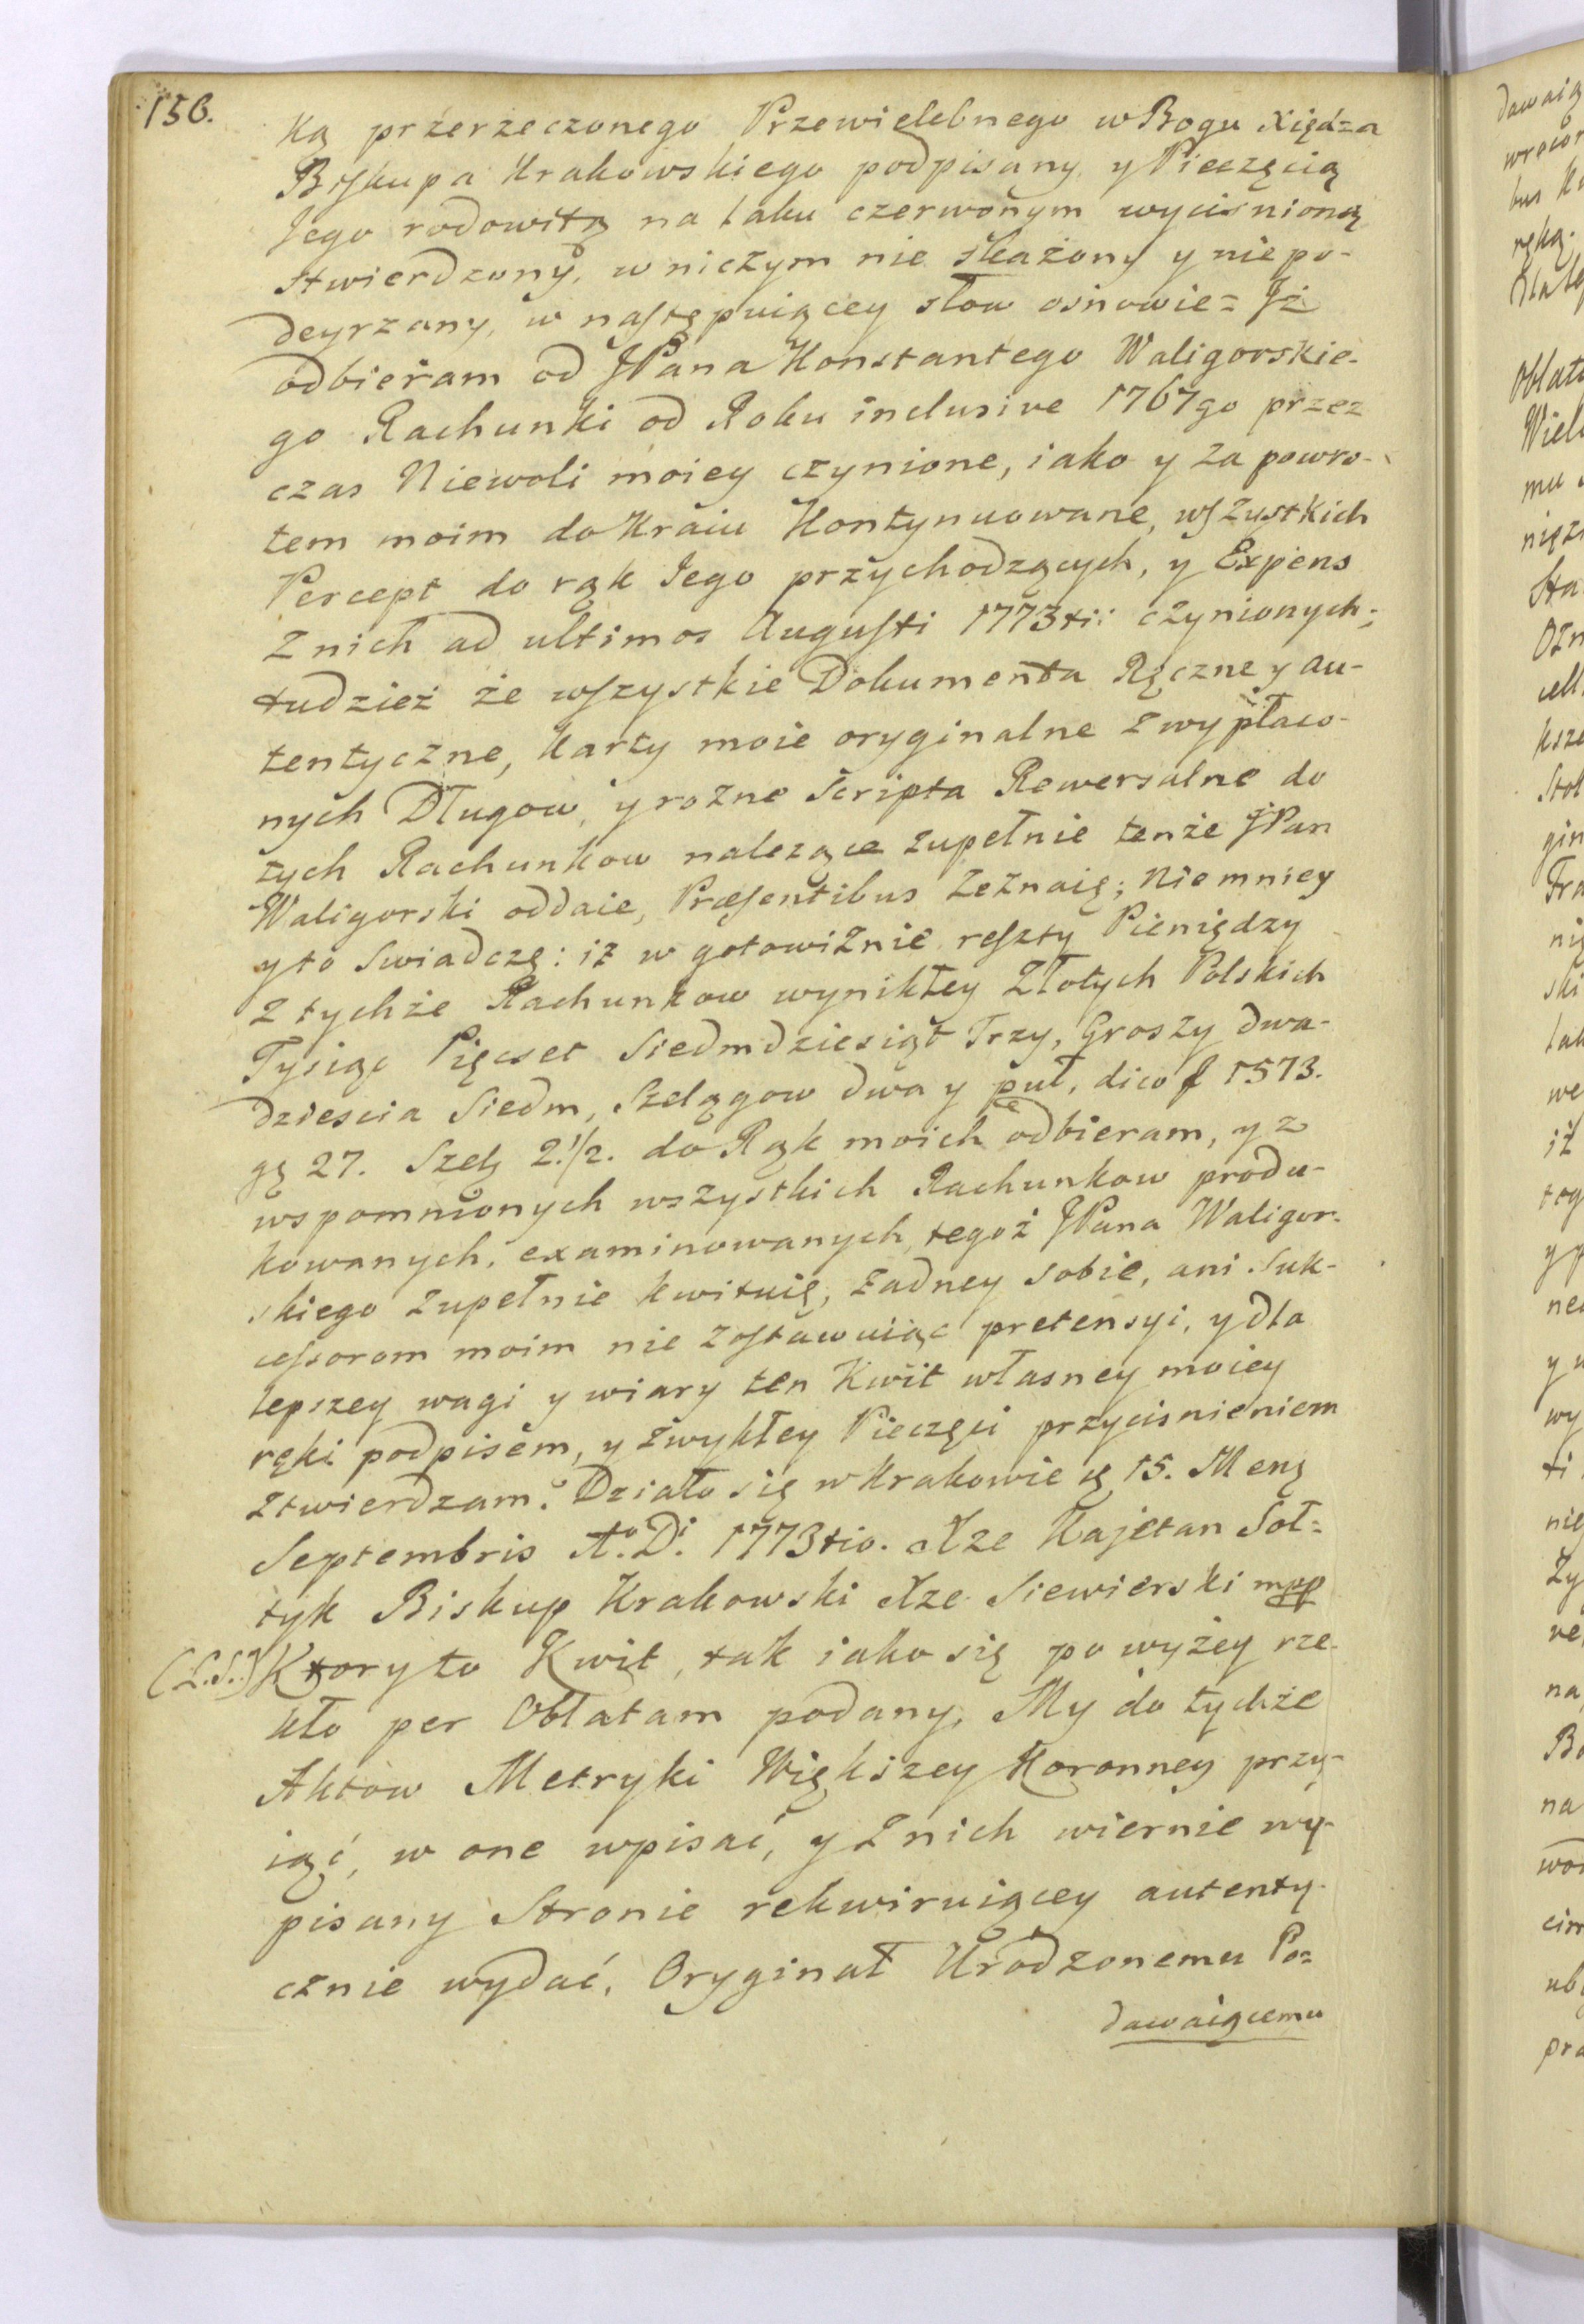 156.
ką przerzeczonego Przewielebnego w Bogu Xiędza
Biskupa Krakowskiego podpisany, y Pieczęcią
Jego rodowitą na laku czerwonym wycisnioną
stwierdzony, w niczym nie skażony y niepo-
deyrzany, w następuiącey słow osnowie = Jż
odbieram od JPana Konstantego Waligorskie-
go Rachunki od Roku inclusive 1767go przez
czas Niewoli moiey czynione, iako y za powro-
tem moim do Kraiu Kontynuowane, wszystkich
Percept do rąk Jego przychodzących, y Expens
z nich ad ultimos Augusti 1773tii czynionych;
tudzież że wszystkie Dokumenta Ręczne y au-
tentyczne, karty moie oryginalne z wypłaco-
nych Długow, y rozne Scripta Rewersalne do
tych Rachunkow nalezące zupełnie tenże JPan
Waligorski oddaie, Præsentibus zeznaię; Niemniey
y to Swiadczę: iż w gotowiznie reszty Pieniędzy
z tychże Rachunkow wynikłey Złotych Polskich
Tysiąc Pięcset Siedmdziesiąt Trzy, Groszy dwa-
dziescia Siedm, Szelągow dwa y puł, dico f 1573.
gę 27. Szelę 2.1/2. do Rąk moich odbieram, y z
wspomnionych wszystkich Rachunkow produ-
kowanych, examinowanych, tegoż JPana Waligor-
skiego zupełnie kwituię, żadney sobie, ani Suk-
cessorom moim nie zostawuiąc pretensyi, y dla
lepszey wagi y wiary ten Kwit własney moiey
ręki podpisem, y zwykłey Pieczęci przycisnieniem
ztwierdzam. Działo się w Krakowie 15. Mens
Septembris Ao. Di. 1773tio. Xże Kajetan Soł=
tyk Biskup Krakowski Xże Siewierski mpp
(L.S.) Ktory to Kwit, tak iako się powyżey rze-
kło per Oblatam podany, My do tychże
Aktow Metryki Większey Koronney przy-
iąć, w one wpisać, y z nich wiernie wy-
pisany Stronie rekwiruiącey autenty-
cznie wydać, Oryginał Urodzonemu Po=
dawaiącemu